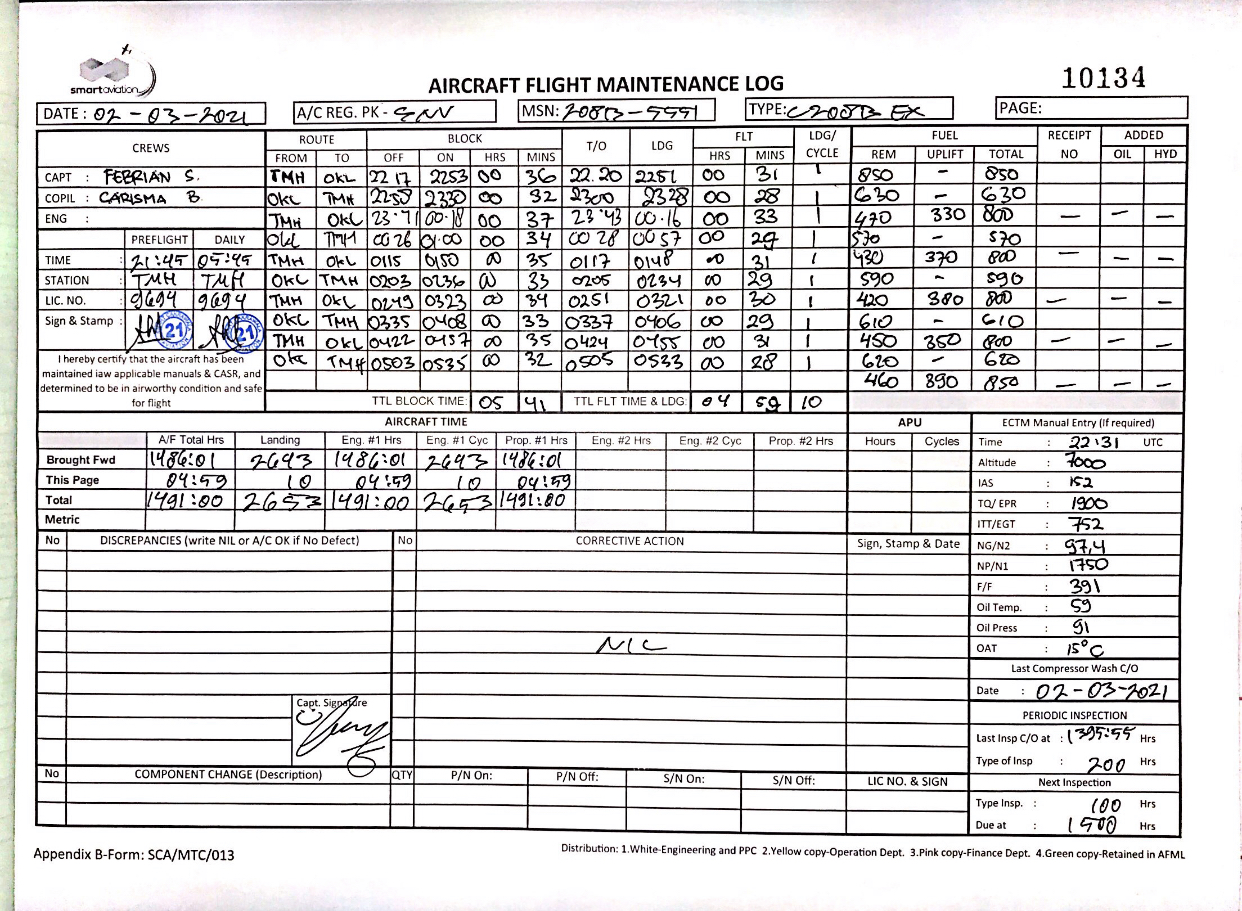 smartaviation
AIRCRAFT FLIGHT MAINTENANCE LOG
10134
DATE : 02 - 03 - 2021 A/C REG. PK - SNV MSN: 208B - 5551 TYPE: C208B EX PAGE:
CREWS ROUTE BLOCK T/O LDG FLT LDG/ CYCLE FUEL RECEIPT NO ADDED
FROM TO OFF ON HRS MINS HRS MINS REM UPLIFT TOTAL OIL HYD
CAPT : FEBRIAN S. TMH OKL 2217 2253 00 36 22.20 2251 00 31 1 850 - 850
COPIL : CARISMA B OKL TMH 2258 2330 00 32 2300 2328 00 28 1 630 - 630
ENG : TMH OKL 23:41 00.18 00 37 23:43 00.16 00 33 1 470 330 800 — — —
OKL TMH 0026 01.00 00 34 0028 0057 00 29 1 570 - 570
PREFLIGHT DAILY
TIME : 21:45 05:45 TMH OKL 0115 0150 00 35 0117 0148 00 31 1 430 370 800 — — —
STATION : TMH TMH OKL TMH 0203 0236 00 33 0205 0234 00 29 1 590 - 590
LIC. NO. : 9694 9694 TMH OKL 0249 0323 00 34 0251 0321 00 30 1 420 380 800 — — —
Sign & Stamp : 21 21 OKL TMH 0335 0408 00 33 0337 0406 00 29 1 610 - 610
TMH OKL 0422 0457 00 35 0424 0455 00 31 1 450 350 800 — — —
OKL TMH 0503 0535 00 32 0505 0533 00 28 1 620 - 620
460 890 850 — — —
I hereby certify that the aircraft has been
maintained iaw applicable manuals & CASR, and
determined to be in airworthy condition and safe
for flight
TTL BLOCK TIME: 05 41 TTL FLT TIME & LDG: 04 59 10
AIRCRAFT TIME APU ECTM Manual Entry (If required)
A/F Total Hrs Landing Eng. #1 Hrs Eng. #1 Cyc Prop. #1 Hrs Eng. #2 Hrs Eng. #2 Cyc Prop. #2 Hrs Hours Cycles Time : 22:31 UTC
Brought Fwd 1486:01 2643 1486:01 2643 1486:01 Altitude : 7000
This Page 04:59 10 04:59 10 04:59 IAS : 152
Total 1491:00 2653 1491:00 2653 1491:00 TQ/ EPR : 1900
Metric ITT/EGT : 752
No DISCREPANCIES (write NIL or A/C OK if No Defect) No CORRECTIVE ACTION Sign, Stamp & Date NG/N2 : 97,4
NP/N1 : 1750
F/F : 391
Oil Temp. : 59
Oil Press : 91
NIL OAT : 15°C
Last Compressor Wash C/O
Capt. Signature Date : 02-03-2021
PERIODIC INSPECTION
Last Insp C/O at : 1395:55 Hrs
Type of Insp : 200 Hrs
No COMPONENT CHANGE (Description) QTY P/N On: P/N Off: S/N On: S/N Off: LIC NO. & SIGN Next Inspection
Type Insp. : 100 Hrs
Due at : 1500 Hrs
Appendix B-Form: SCA/MTC/013
Distribution: 1.White-Engineering and PPC 2.Yellow copy-Operation Dept. 3.Pink copy-Finance Dept. 4.Green copy-Retained in AFML